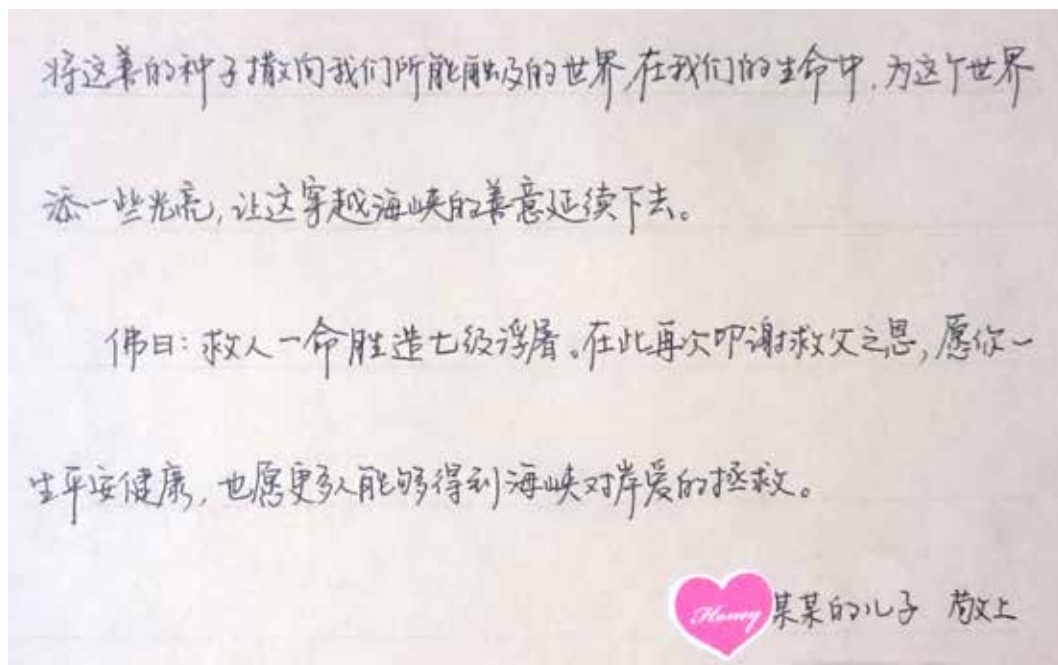 将这善的种子撒向我们所能触及的世界,在我们的生命中,为这个世界
添一些光亮,让这穿越海峡的善意延续下去。
佛曰:救人一命胜造七级浮屠。在此再次叩谢救父之恩,愿你一
生平安健康,也愿更多人能够得到海峡对岸爱的拯救。
Honey 某某的儿子 敬上